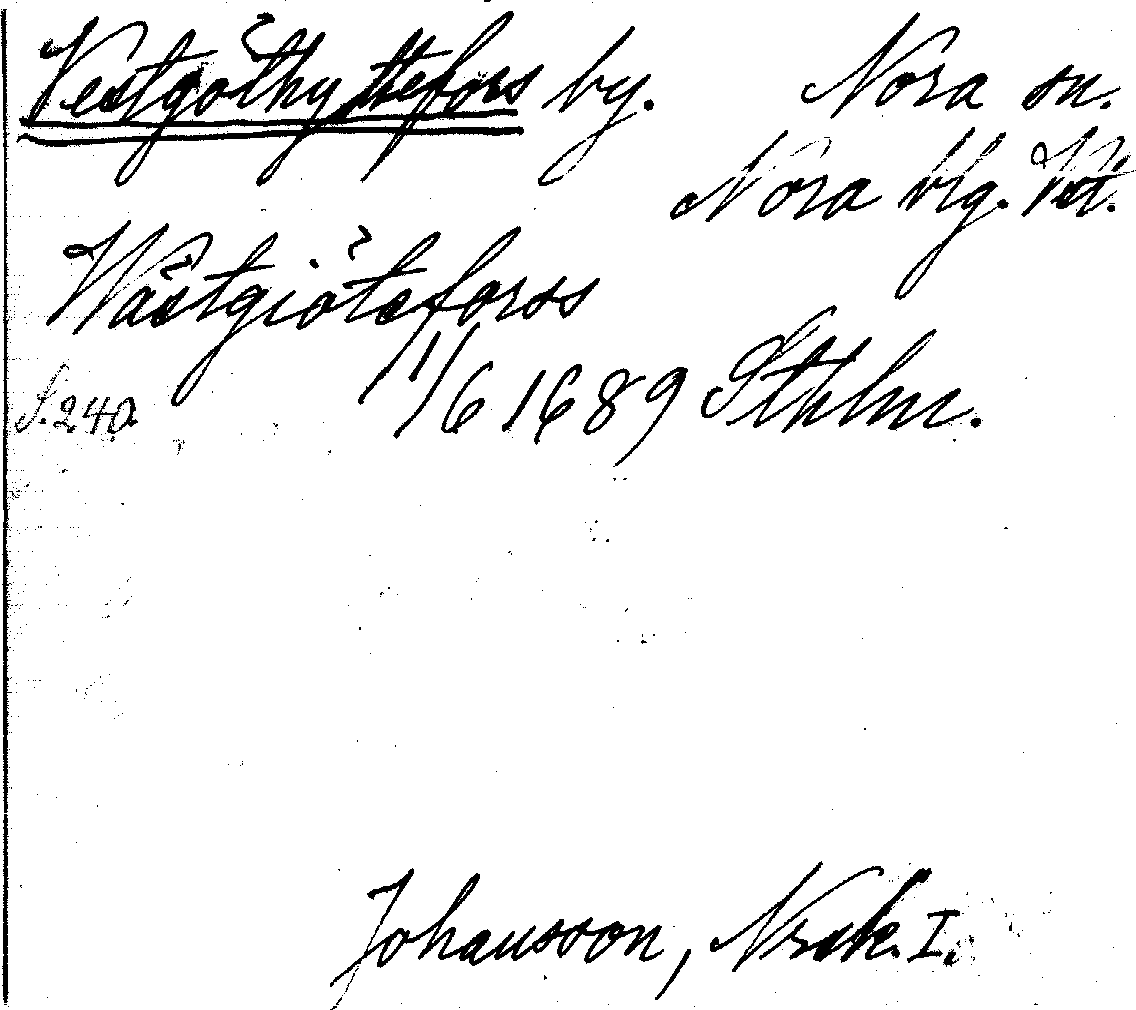 Vestgöthyttefors by. Nora sn.
Nora blg. Vstl.
Wästgiöteforss
S. 240. 11/6 1689 Sthlm.
Johansson, Nrsk. I.